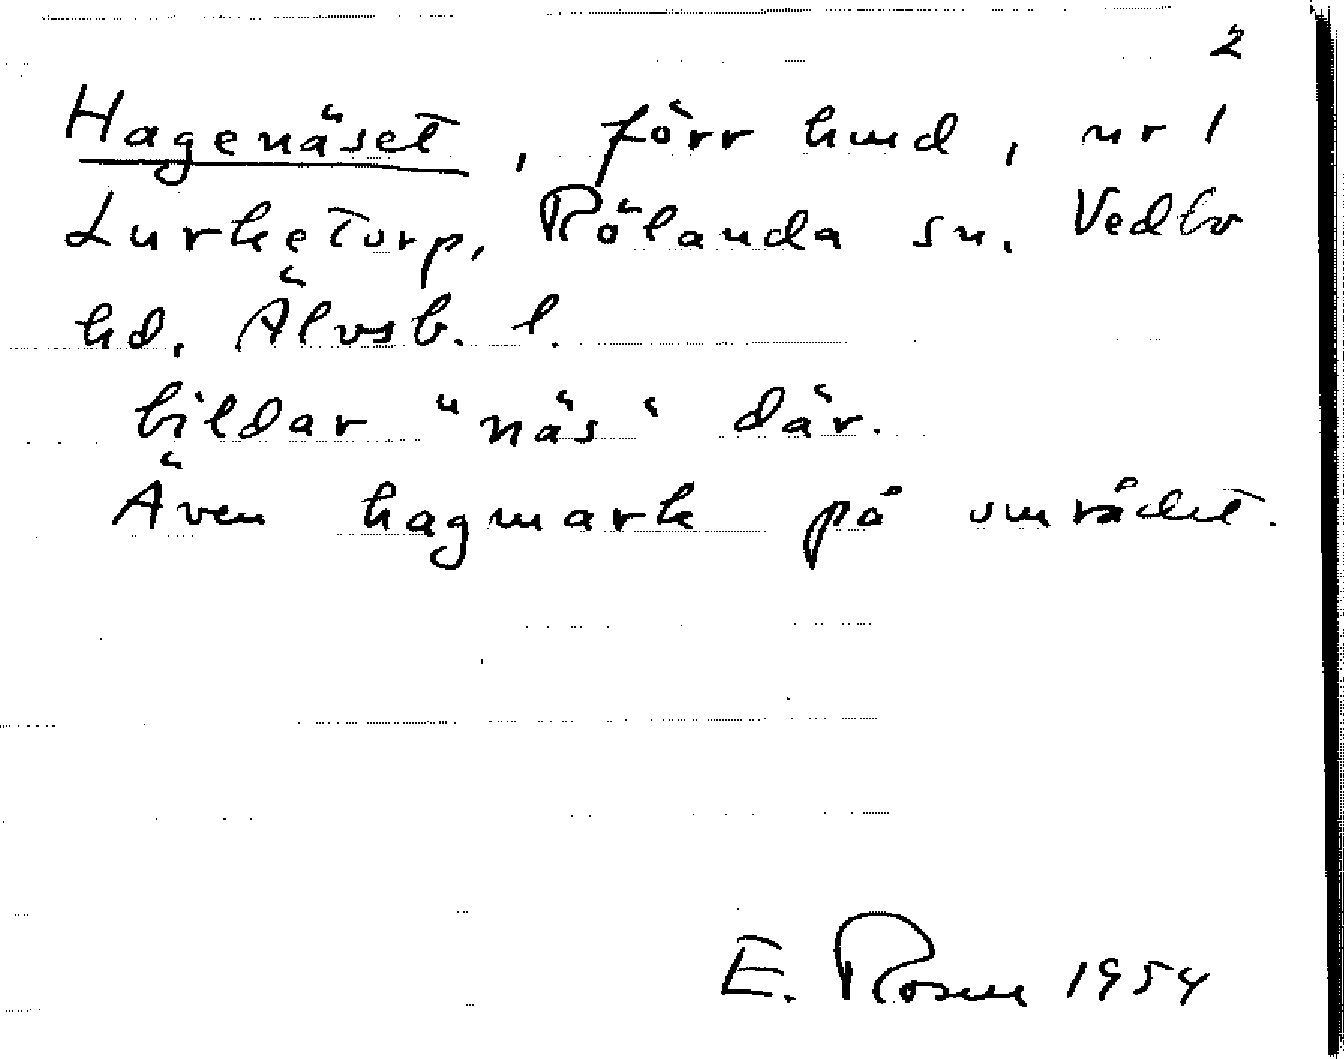 2
Hagenäset, förr hmd, nr 1
Lurketorp, Rölanda sn. Vedbo
hd. Älvsb. l.
bildar "näs" där.
Även hagmark på området.
E. Rosen 1954